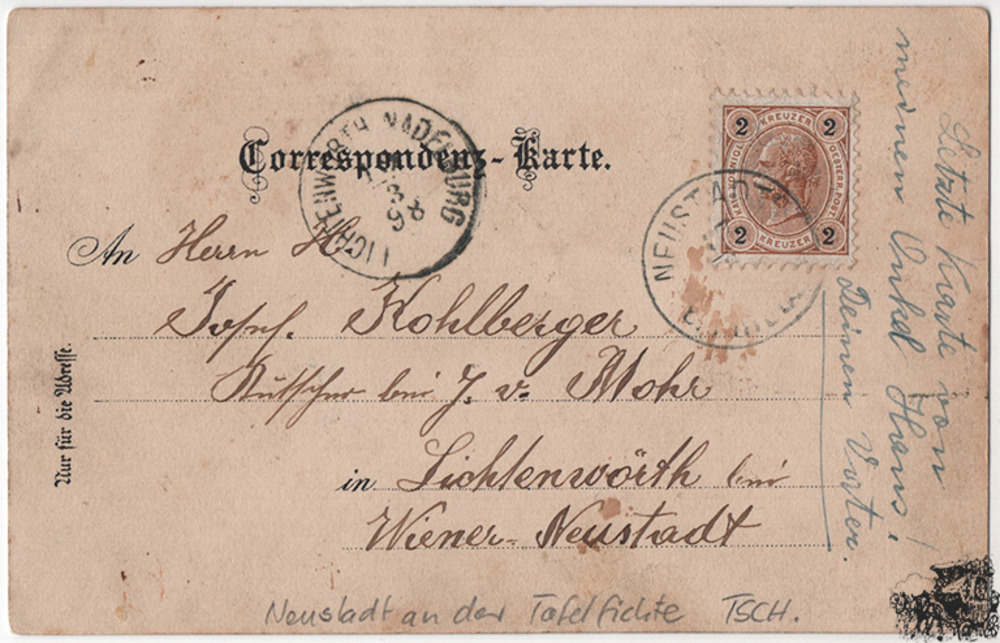 Correspondenz-Karte.
LICHTENWÖRTH NADELBURG
98
2 KREUZER 2
KAIS. KÖNIGL. OESTERR. POST
2 KREUZER 2
NEUSTADT
An Herrn H.
Josef Kohlberger
Kutscher bei J. v. Mohr
in Lichtenwörth bei
Wiener-Neustadt
Nur für die Adresse.
Letzte Karte von
meinem Onkel Hans!
Deinen Vater
Neustadt an der Tafelfichte TSCH.